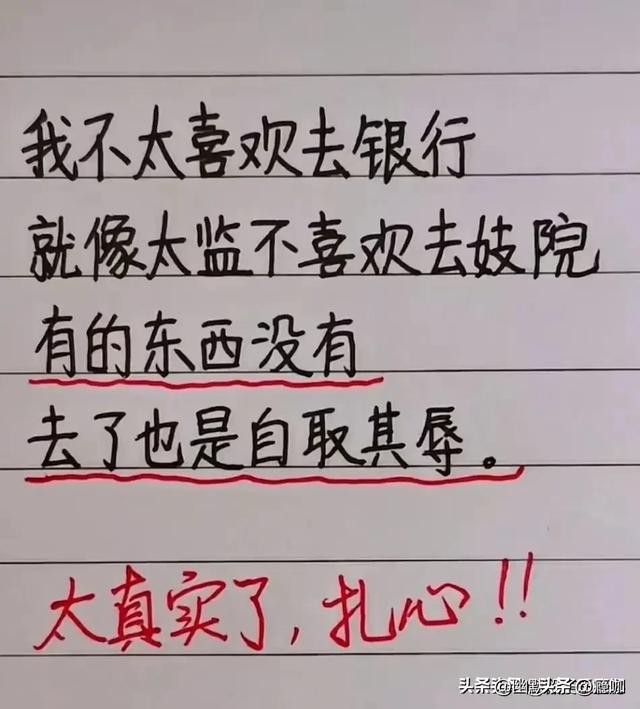 我不太喜欢去银行
就像太监不喜欢去妓院
有的东西没有
去了也是自取其辱。
太真实了,扎心!!
头条 @瘾咖